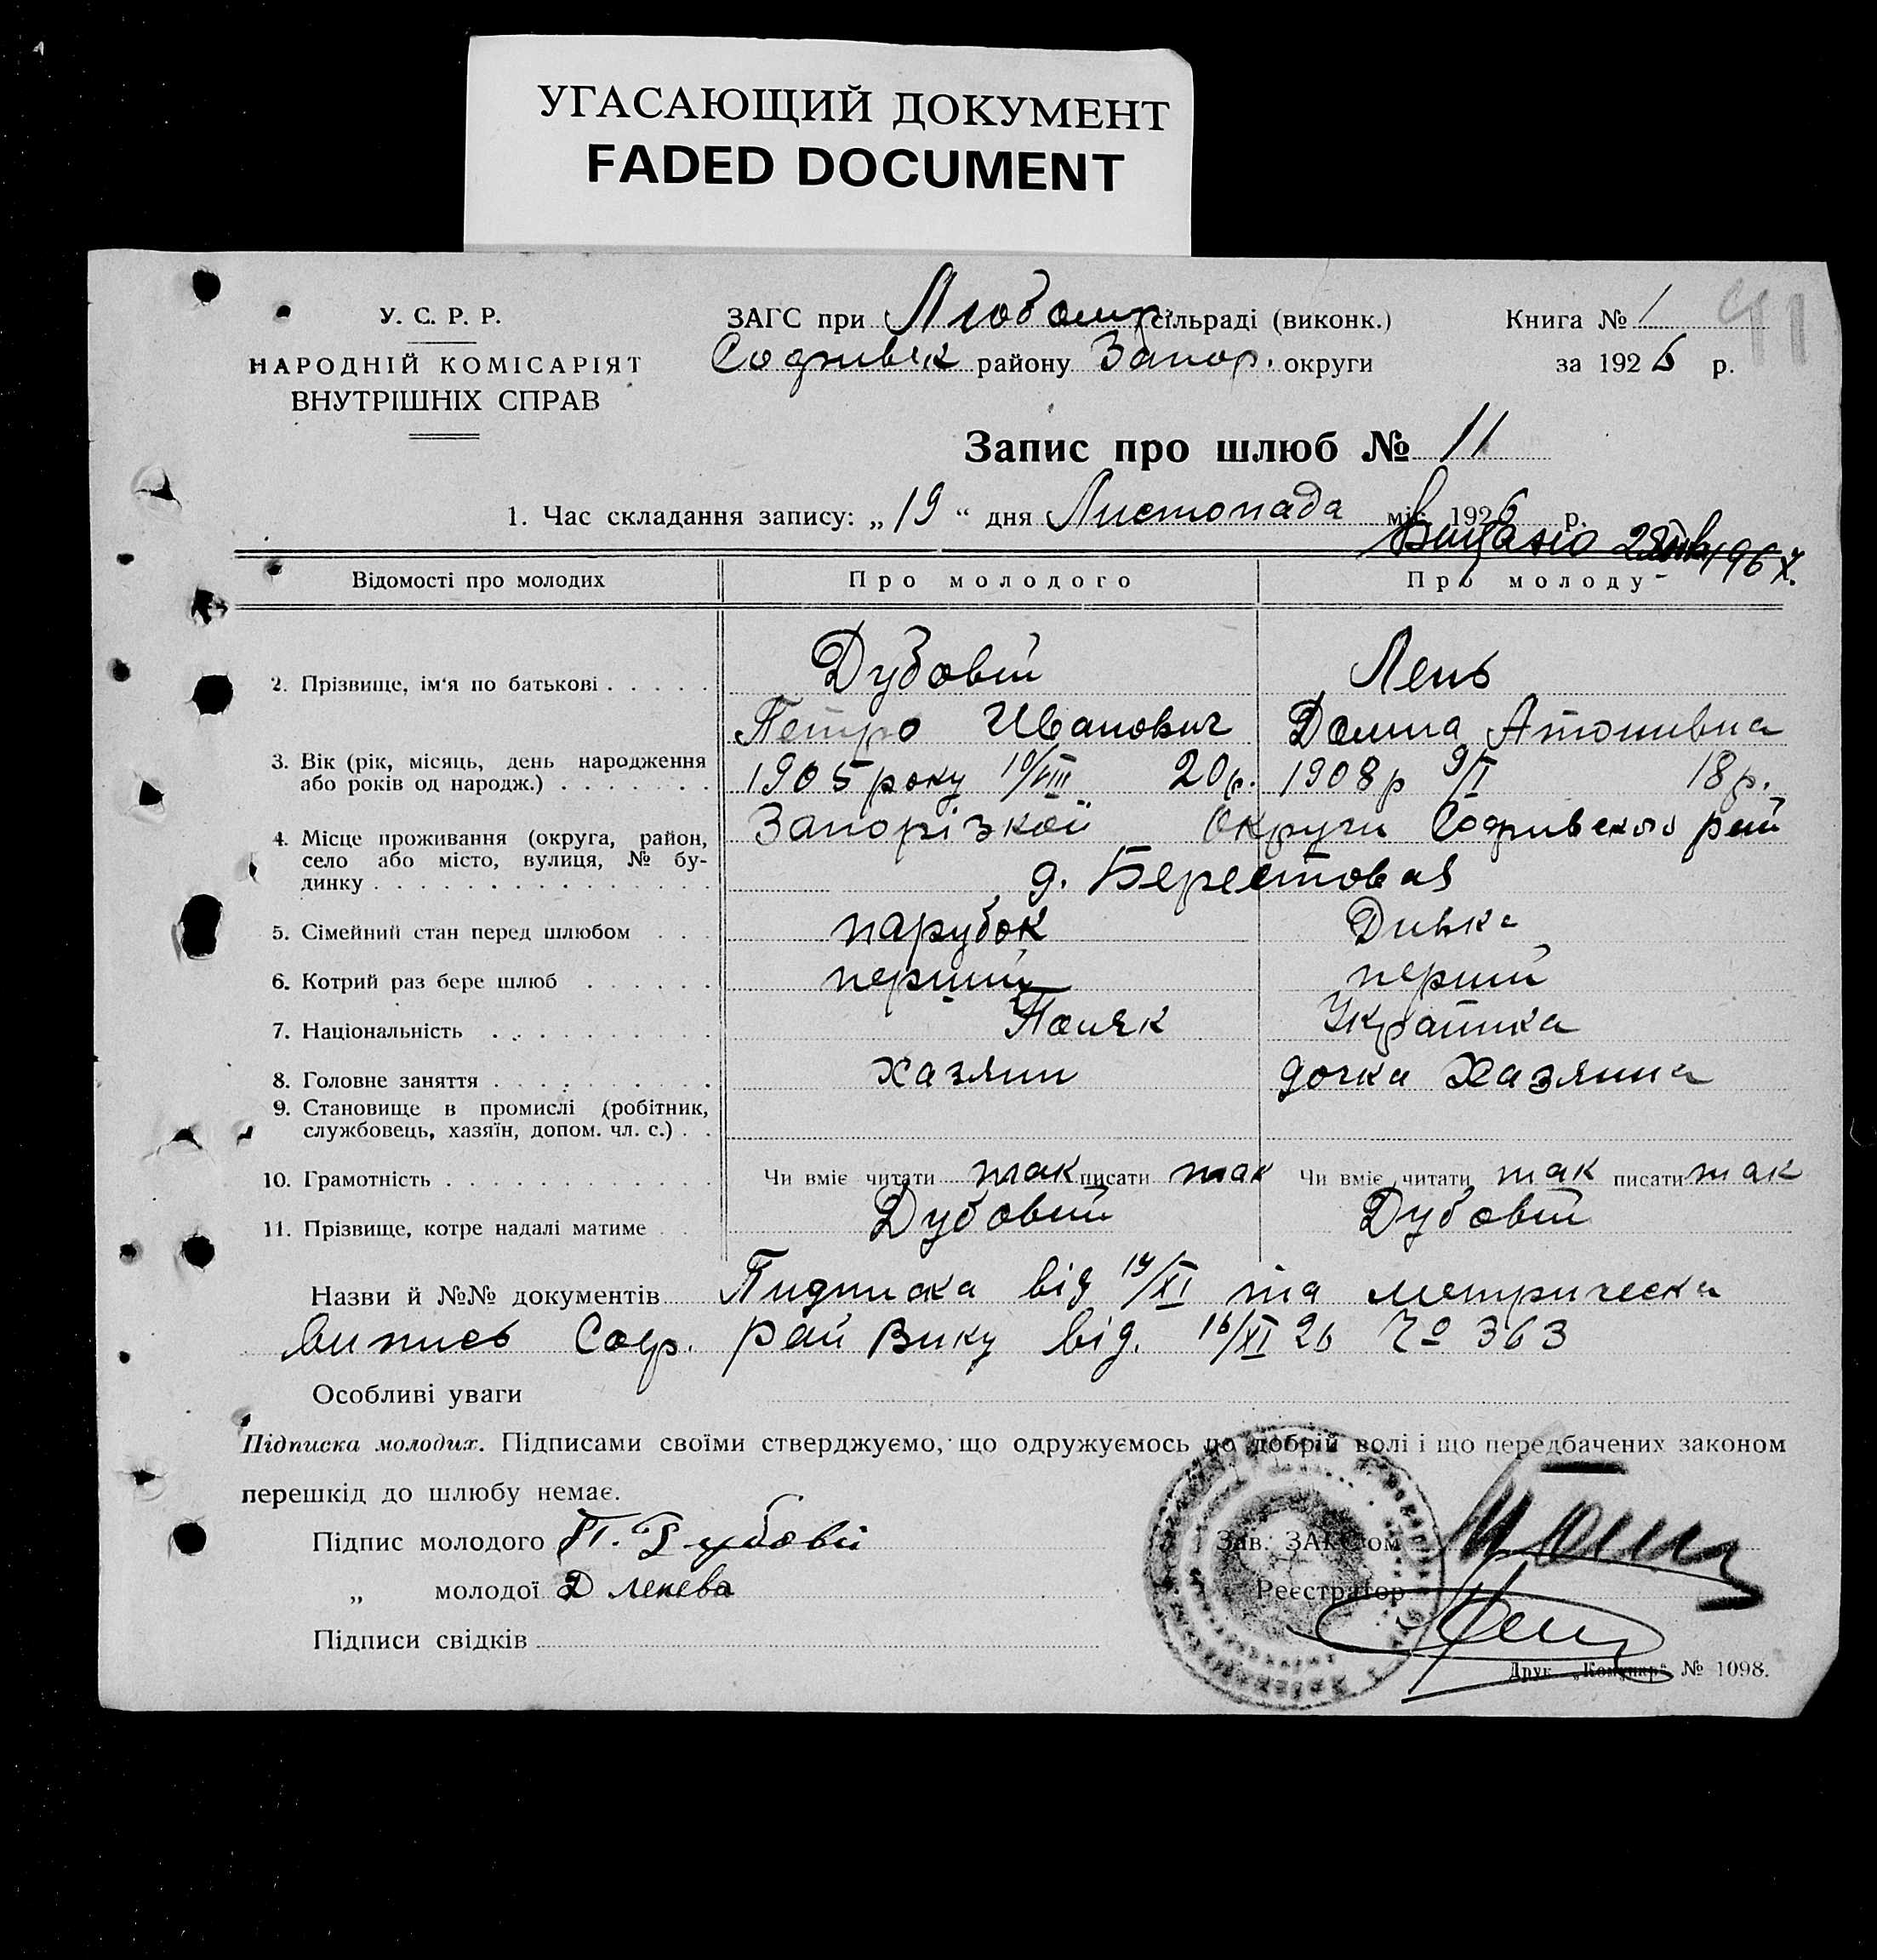 УГАСАЮЩИЙ ДОКУМЕНТ
FADED DOCUMENT
У. С. Р. Р.
НАРОДНІЙ КОМІСАРІЯТ
ВНУТРІШНІХ СПРАВ
ЗАГС при Любомир. сільраді (виконк.)
Софиивск району Запор. округи
Книга № 1
за 1926 р.
41
Запис про шлюб № 11
1. Час складання запису: „19“ дня Листопада міс. 1926 р.
Відомості про молодих Про молодого Про молоду
2. Прізвище, ім'я по батькові Дубовий Лень
Петро Иванович Домна
3. Вік (рік, місяць, день народження
або років од народж.) 1905 року 10/VIII 20 р. 1908 р 9/I 18 р.
4. Місце проживання (округа, район,
село або місто, вулиця, № бу-
динку Запорізкой Округи Софиивского рай
д. Берестовая
5. Сімейний стан перед шлюбом парубок Дивка
6. Котрий раз бере шлюб перший перший
7. Національність Поляк Украинка
8. Головне заняття хазяин дочка Хазяина
9. Становище в промислі (робітник,
службовець, хазяїн, допом. чл. с.)
10. Грамотність Чи вміє читати так писати так Чи вміє читати так писати так
11. Прізвище, котре надалі матиме Дубовий Дубовий
Назви й №№ документів Пидписка від 19/XI та метрическа
випись Соф. Рай Вику від. 16/XI 26 № 363
Особливі уваги
Підписка молодих. Підписами своїми стверджуємо, що одружуємось по добрій волі і що передбачених законом
перешкід до шлюбу немає.
Підпис молодого П. Дубовий
„ молодої Д Ленева
Підписи свідків
Зав. ЗАГСом
Реєстратор
Друк. „Комунар“ № 1098.